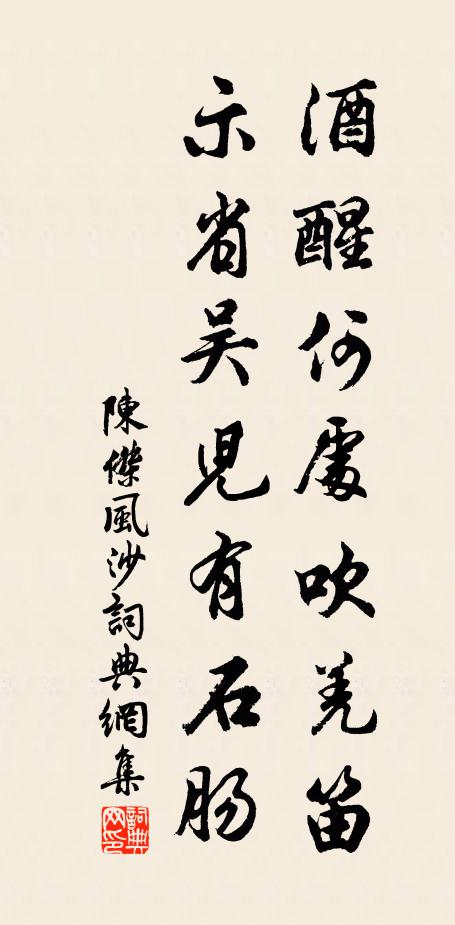 酒醒何處吹羌笛
示省吴兒有石肠
陳傑風沙詞典網集
詞典网印